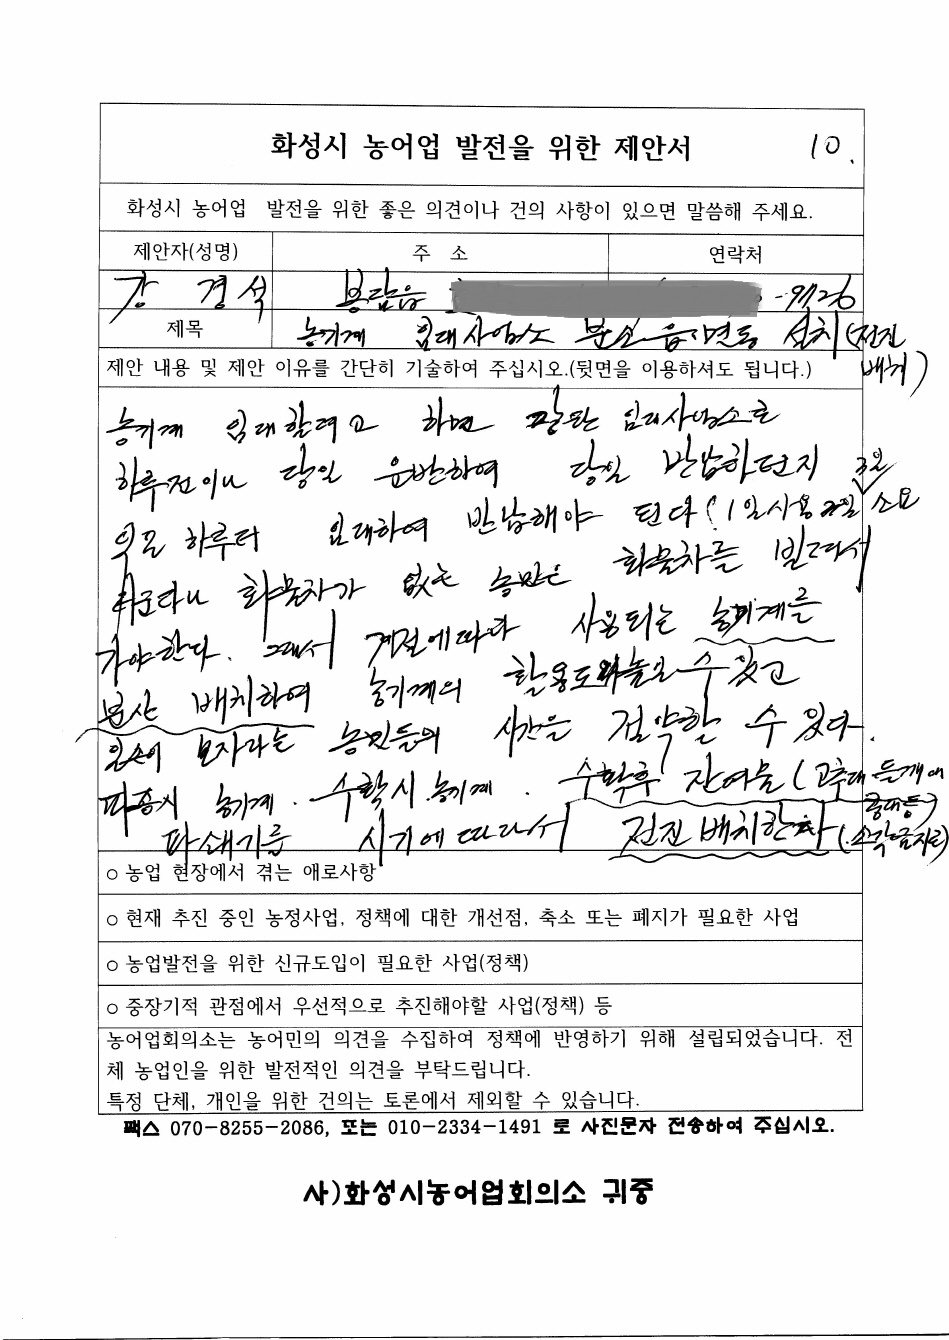 화성시 농어업 발전을 위한 제안서 10.
화성시 농어업 발전을 위한 좋은 의견이나 건의 사항이 있으면 말씀해 주세요.
제안자(성명) 주 소 연락처
강 경 석 봉담읍 -9726
제목 농기계 임대사업소 분소 읍,면동 설치(전진
배치)
제안 내용 및 제안 이유를 간단히 기술하여 주십시오.(뒷면을 이용하셔도 됩니다.)
농기계 임대할려고 하면 임대사업소로
하루전이나 당일 운반하여 당일 반납하던지 3일
하루더 임대하여 반납해야 된다(1일사용 소요
화물차가 없는 농민은 화물차를 빌려서
가야한다. 그래서 계절에따라 사용되는 농기계를
분산 배치하여 농기계의 활용도 수 있고
일손이 모자라는 농민들의 시간을 절약할 수 있다.
파종시 농기계. 수확시 농기계. 수확후 잔여물(고추대 들깨대
콩대등)
파쇄기를 시기에 따라서 전진배치한다(소각금지로)
○ 농업 현장에서 겪는 애로사항
○ 현재 추진 중인 농정사업, 정책에 대한 개선점, 축소 또는 폐지가 필요한 사업
○ 농업발전을 위한 신규도입이 필요한 사업(정책)
○ 중장기적 관점에서 우선적으로 추진해야할 사업(정책) 등
농어업회의소는 농어민의 의견을 수집하여 정책에 반영하기 위해 설립되었습니다. 전
체 농업인을 위한 발전적인 의견을 부탁드립니다.
특정 단체, 개인을 위한 건의는 토론에서 제외할 수 있습니다.
팩스 070-8255-2086, 또는 010-2334-1491 로 사진문자 전송하여 주십시오.
사)화성시농어업회의소 귀중